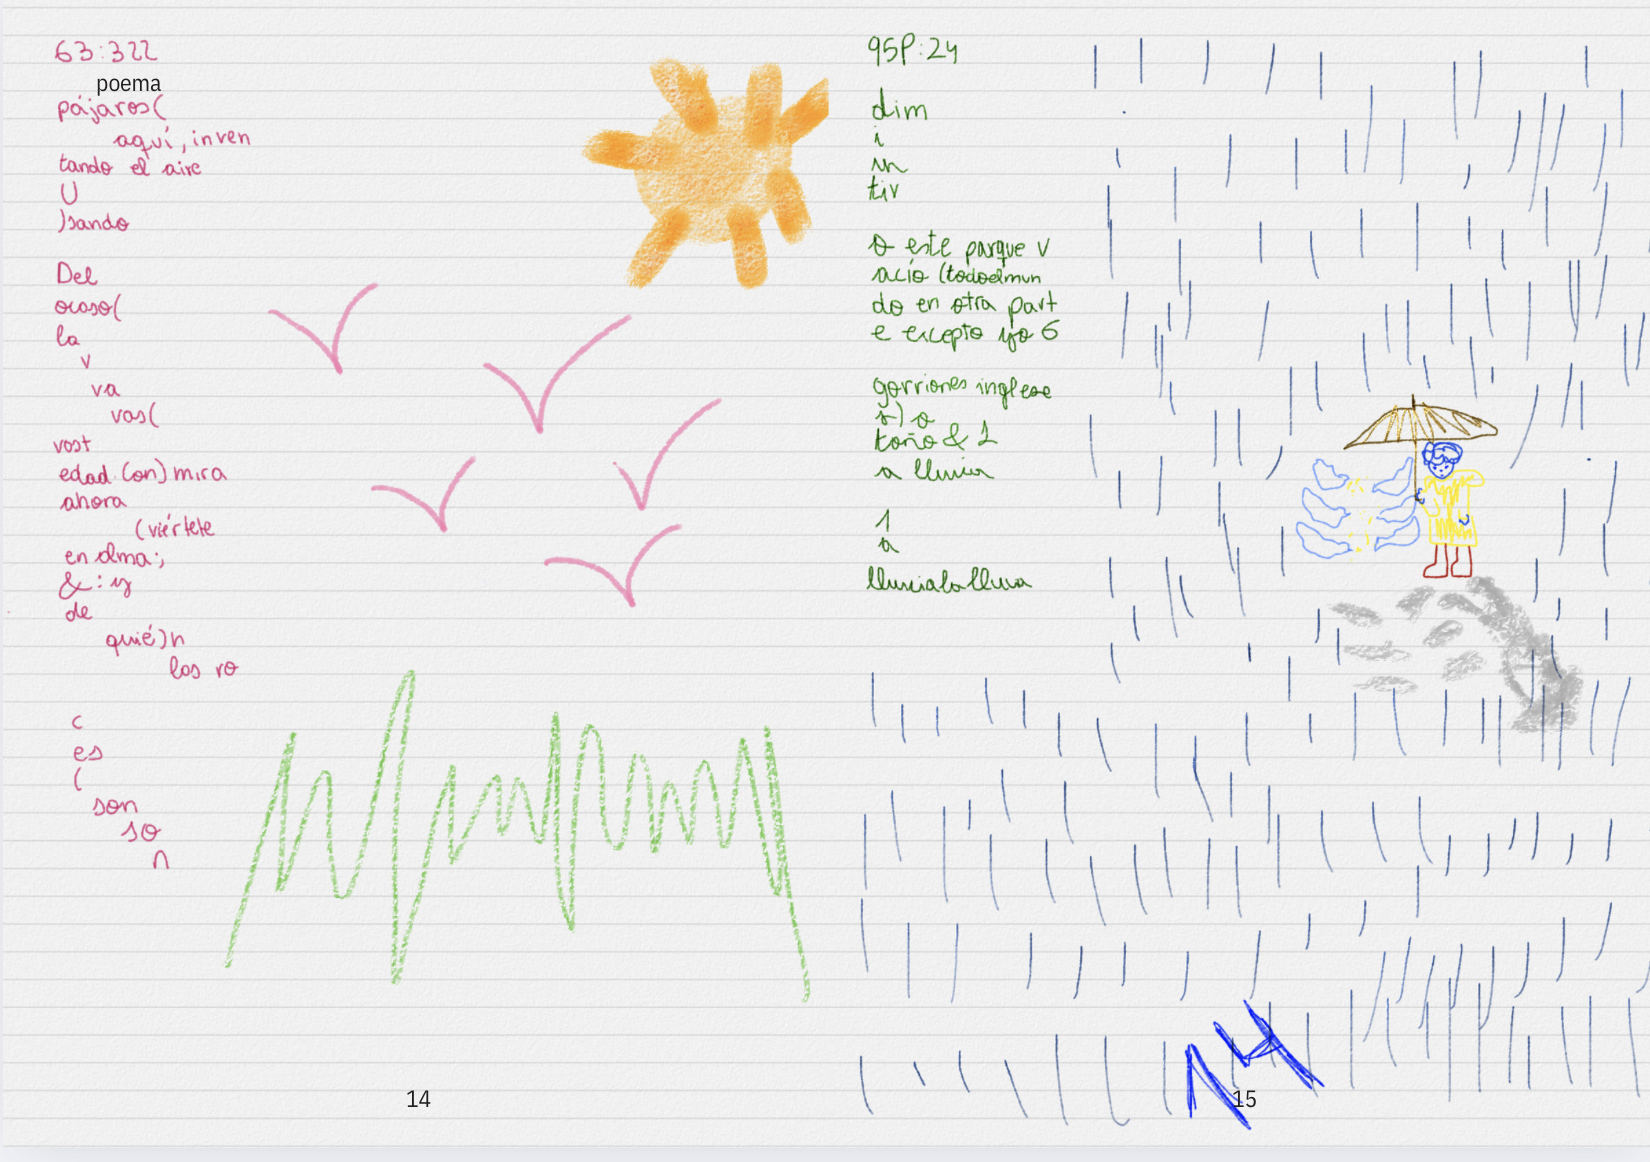 63:322
poema
pájaros(
aquí, inven
tando el aire
U
)sando
Del
ocaso(
la
v
va
vas(
vast
edad.(on) mira
ahora
(viértete
en alma;
& : y
de
quié)n
las vo
c
es
(
son
so
n
14
95P:24
dim
i
nu
tiv
o este parque v
acío (todoelmun
do en otra part
e excepto yo 6
gorriones inglese
s) o
toño & l
a lluvia
l
a
lluvialalluvia
15